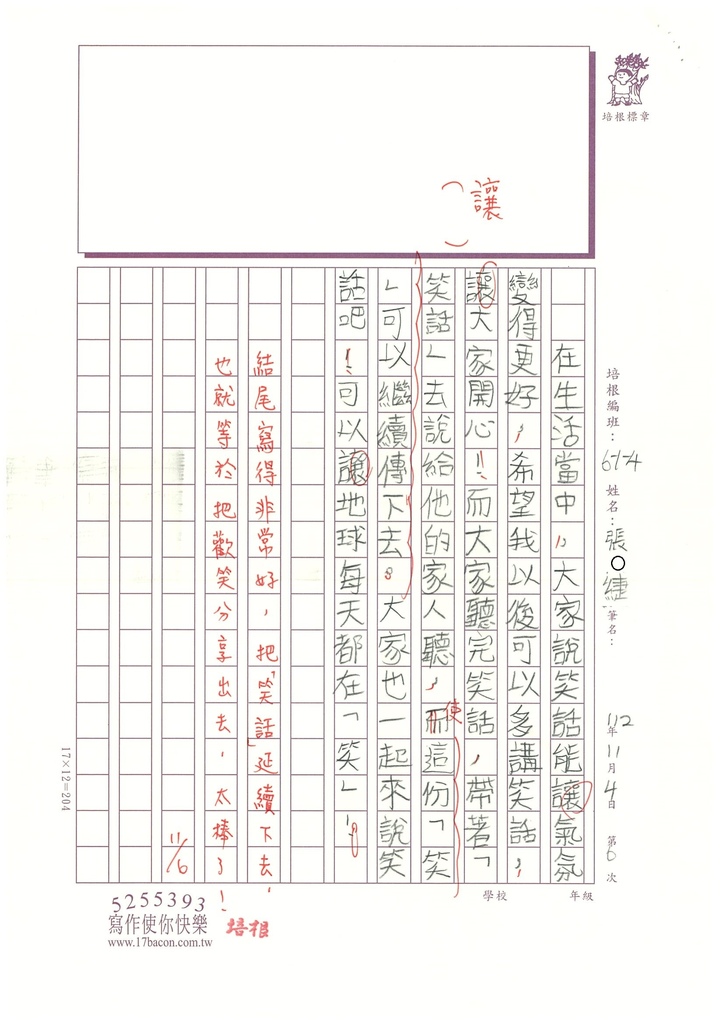 培根標章
讓
培根編班：614 姓名：張○緁 筆名： 112年11月4日 第6次
在生活當中，大家說笑話能讓氣氛
變得更好，希望我以後可以多講笑話，
讓大家開心！而大家聽完笑話，帶著「
笑話」去說給他的家人聽，而這份「笑
使
」可以繼續傳下去。大家也一起來說笑
話吧！可以讓地球每天都在「笑」！
結尾寫得非常好，把「笑話」延續下去，
也就等於把歡笑分享出去，太棒了！
11/6
17×12=204
學校 年級
5255393
寫作使你快樂
www.17bacon.com.tw
培根